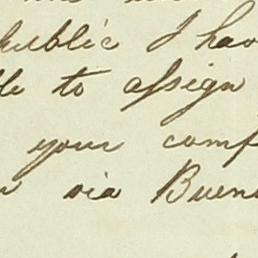 public I hav
to assign
your comp
via Buen